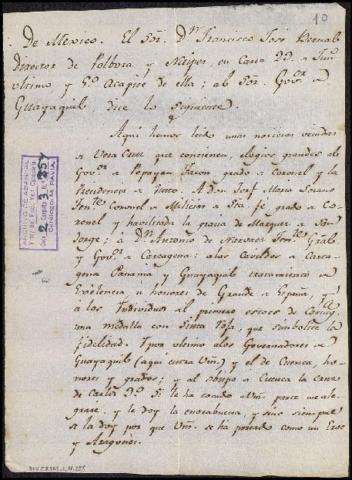 10
De Mexico. El Sor. Dn. Francisco José Bernal
Director de Polbora y Naipes, en Carta
y ; al Sor. Govor.
Guayaquil dice lo siguiente
Aqui hemos leido unas noticias venidas
a Vera Cruz que contienen, elogios grandes al
Govor. de Popayan Tacon grado de Coronel y la
Presidencia de Quito. A Don José Maria
Tente. Coronel de Milicias de Sta. fé, grado de Co-
ronel y havilitada la gracia de Marques de San
Jorge; a Dn. Antonio de Narvaez Tente. Gral
y Govor. de Cartagena: a los Cavildos de Carta-
gena Panamá y Guayaquil tratamiento de
Exelencia y honores de Grande de España, y
á los Individuos del primero
una medalla con Cinta Roja, que simbolice la
fidelidad. Y por ultimo a los Governadores de
Guayaquil (aqui entra Vm.) y el de Cuenca, ho-
nores y grados; y al obispo de Cuenca la cruz
de Carlos 3o. Si le ha tocado a Vm. parte me ale-
grare, y le doy la enorabuena, y sino siempre
se la doy por que Vm. se ha portado como un
y Aragones.
2.3.25